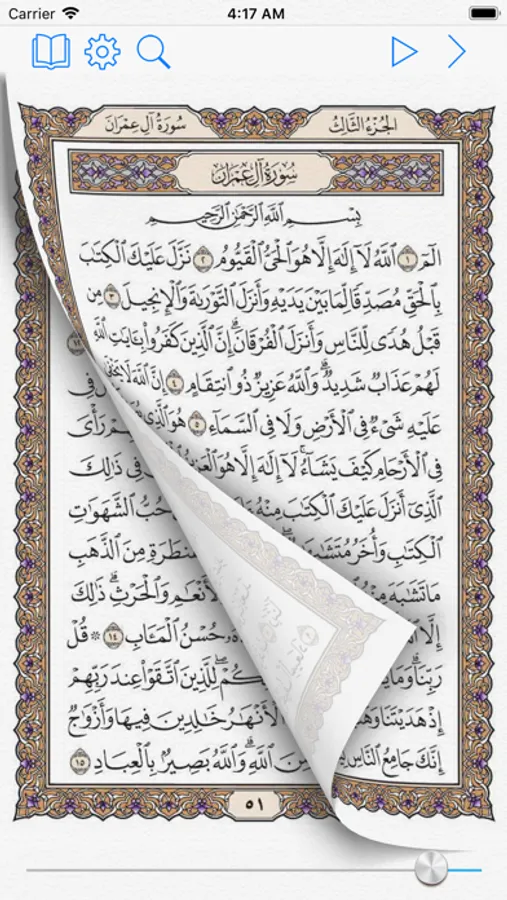 Carrier 4:17 AM
الجُزْءُ الثَّالِثُ سُورَةُ آلِ عِمْرَانَ
سُورَةُ آلِ عِمْرَانَ
بِسْمِ ٱللَّهِ ٱلرَّحْمَٰنِ ٱلرَّحِيمِ
الٓمٓ ١ ٱللَّهُ لَآ إِلَٰهَ إِلَّا هُوَ ٱلْحَىُّ ٱلْقَيُّومُ ٢ نَزَّلَ عَلَيْكَ ٱلْكِتَٰبَ
بِٱلْحَقِّ مُصَدِّقًا لِّمَا بَيْنَ يَدَيْهِ وَأَنزَلَ ٱلتَّوْرَىٰةَ وَٱلْإِنجِيلَ ٣ مِن
قَبْلُ هُدًى لِّلنَّاسِ وَأَنزَلَ ٱلْفُرْقَانَ ۗ إِنَّ ٱلَّذِينَ كَفَرُوا۟ بِـَٔايَٰتِ ٱللَّهِ
لَهُمْ عَذَابٌ شَدِيدٌ ۗ وَٱللَّهُ عَزِيزٌ ذُو ٱنتِقَامٍ ٤ إِنَّ ٱللَّهَ لَا يَخْفَىٰ فِى
عَلَيْهِ شَىْءٌ فِى ٱلْأَرْضِ وَلَا فِى ٱلسَّمَآءِ ٥ هُوَ ٱلَّذِى رَأْىَ
فِى ٱلْأَرْحَامِ كَيْفَ يَشَآءُ ۚ لَآ إِلَٰهَ إِلَّا هُوَ فِى ذَٰلِكَ
ٱلَّذِىٓ أَنزَلَ عَلَيْكَ ٱلْكِتَٰبَ مِنْهُ حُبُّ ٱلشَّهَوَٰتِ
ٱلْكِتَٰبِ وَأُخَرُ مِنَ ٱلذَّهَبِ
مَا تَشَٰبَهَ مِنْهُ وَٱلْحَرْثِ ۗ ذَٰلِكَ
حُسْنُ ٱلْمَـَٔابِ ١٤ ۞ قُلْ
رَبِّنَا لِلَّذِينَ ٱتَّقَوْا۟ عِندَ رَبِّهِمْ
إِذْ هَدَيْتَنَا ٱلْأَنْهَٰرُ خَٰلِدِينَ فِيهَا وَأَزْوَٰجٌ
إِنَّكَ جَامِعُ ٱلنَّاسِ ٱللَّهِ ۗ وَٱللَّهُ بَصِيرٌۢ بِٱلْعِبَادِ ١٥
٥١